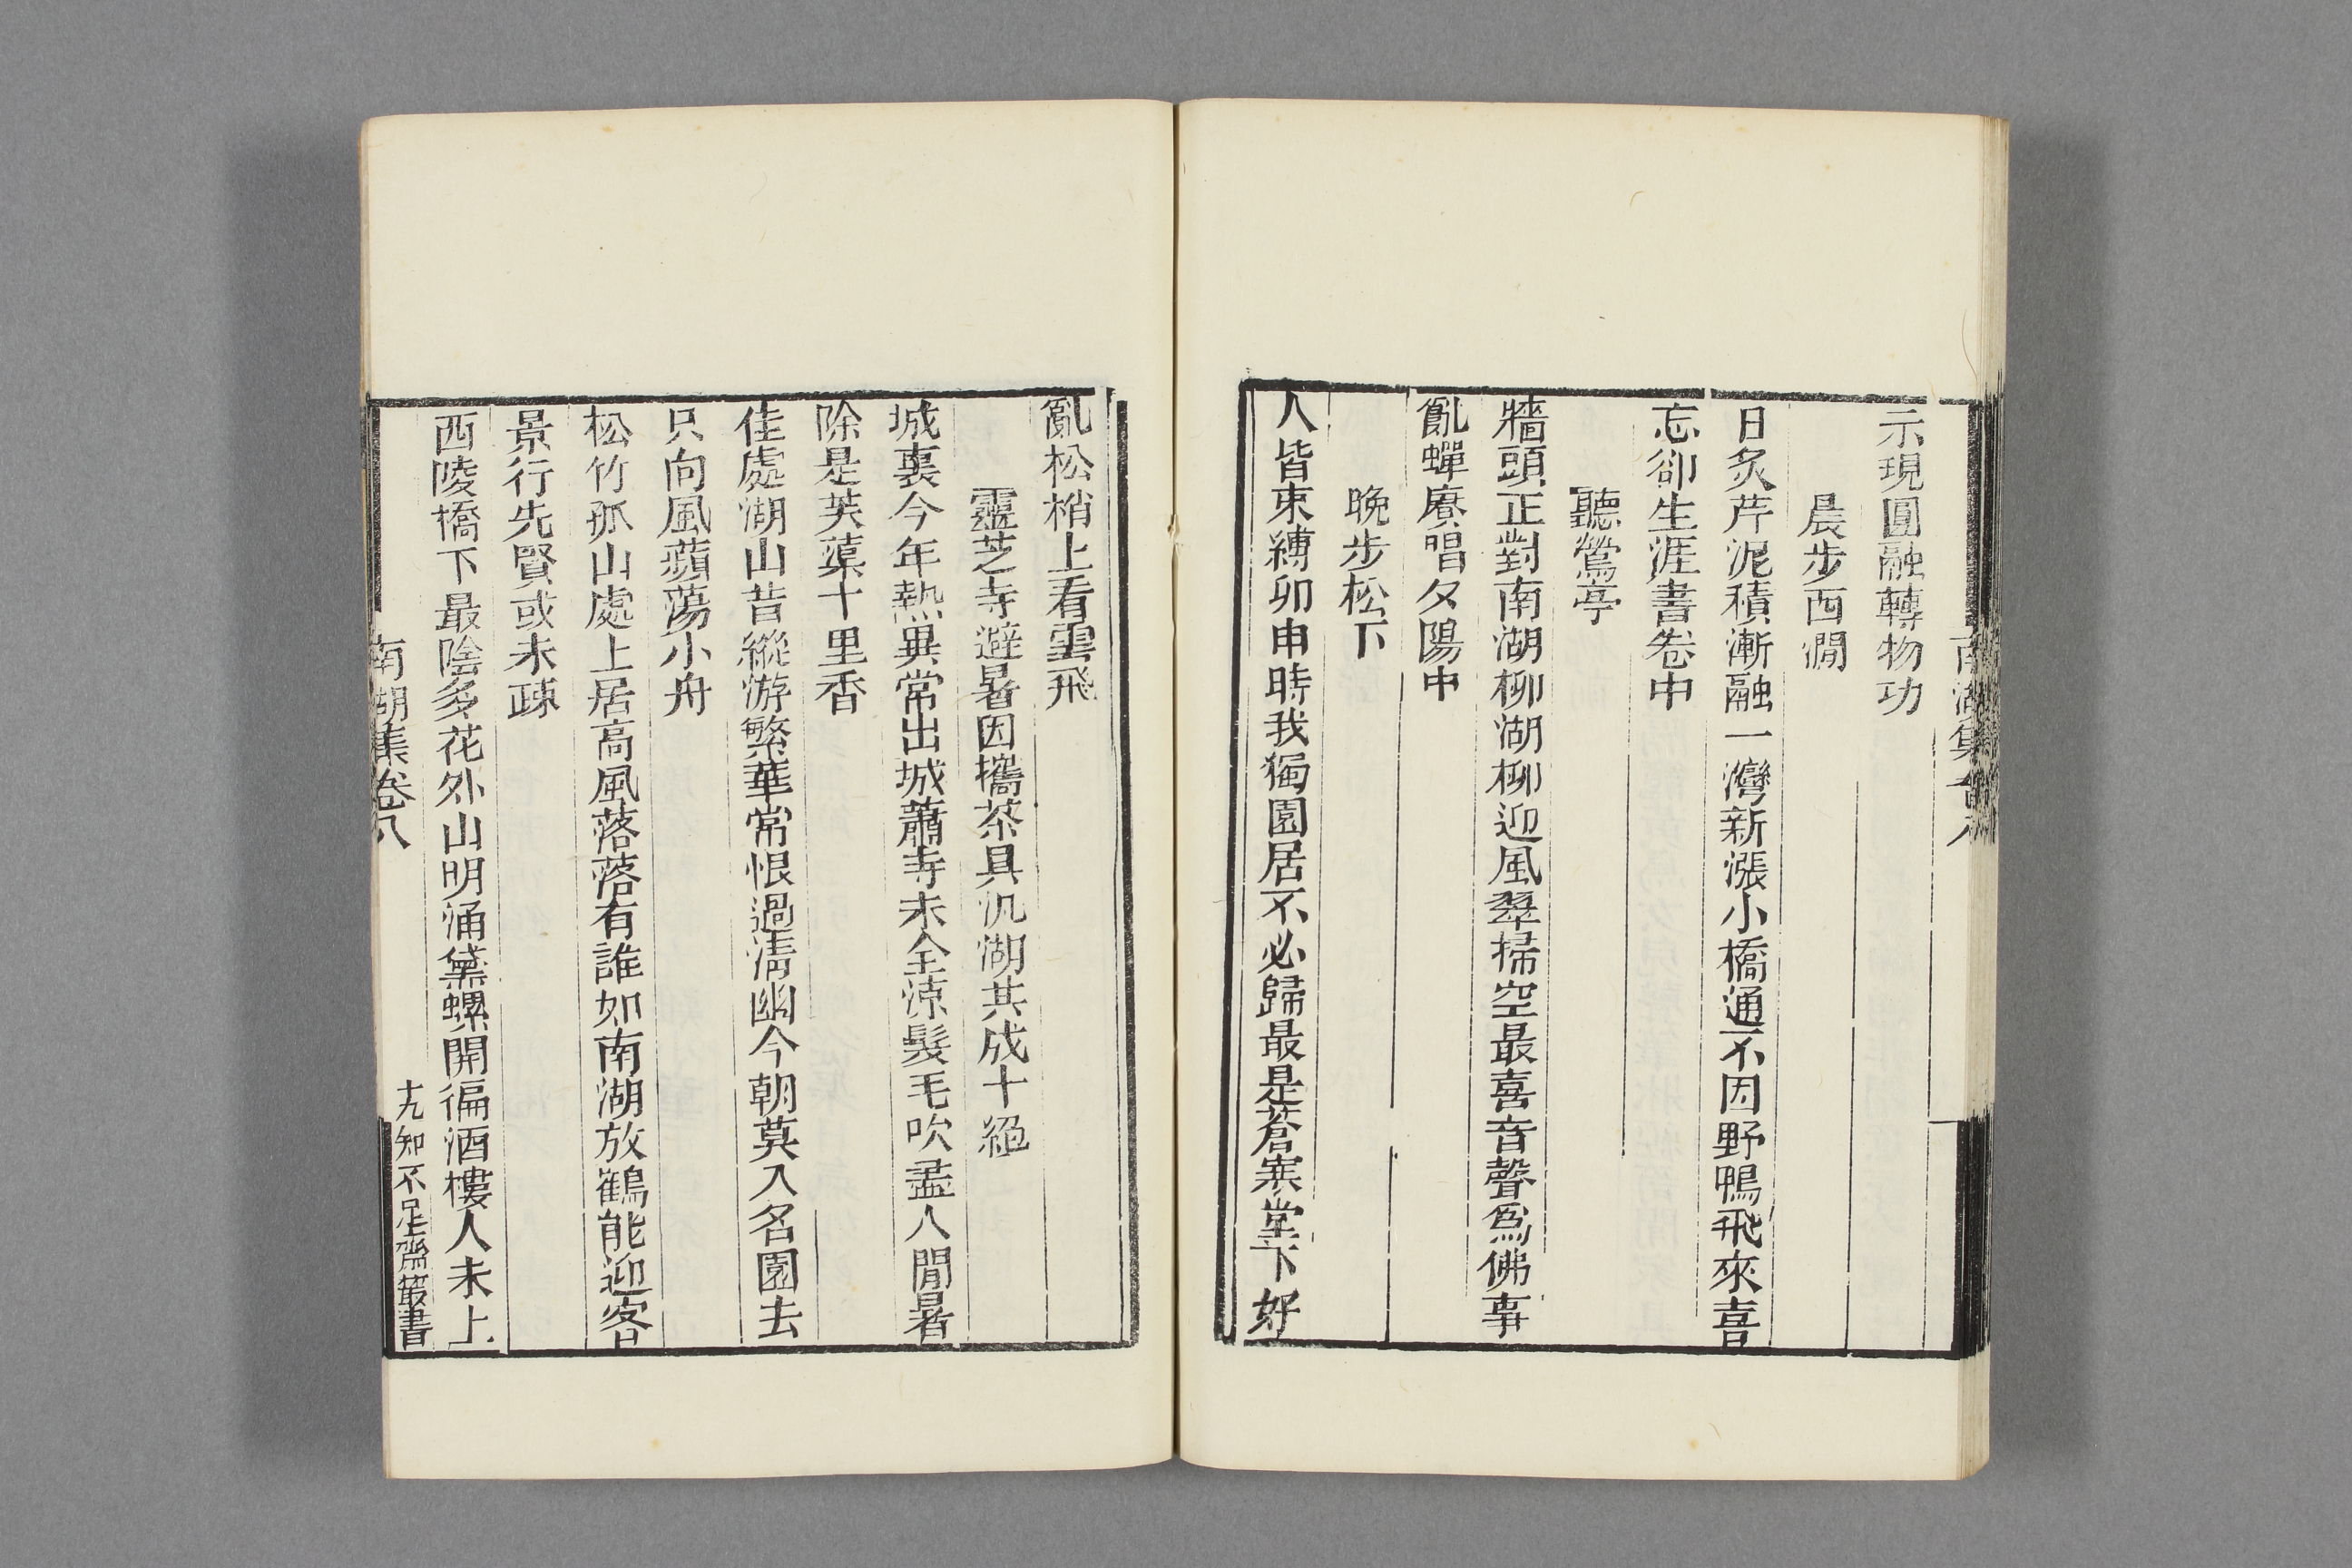 南湖集卷八
示現圓融轉物功
晨步西澗
日炙芹泥積漸融一灣新漲小橋通不因野鴨飛來喜
忘卻生涯書卷中
聽鶯亭
牆頭正對南湖柳湖柳迎風翠掃空最喜音聲爲佛事
亂蟬賡唱夕陽中
晚步松下
人皆束縛卯申時我獨園居不必歸最是蒼寒堂下好
亂松梢上看雲飛
靈芝寺避暑因攜茶具汎湖共成十絕
城裏今年熱異常出城蕭寺未全涼髮毛吹盡人閒暑
除是芙蕖十里香
佳處湖山昔縱游繁華常恨過淸幽今朝莫入名園去
只向風蘋蕩小舟
松竹孤山處上居高風落落有誰如南湖放鶴能迎客
景行先賢或未疎
西陵橋下最陰多花外山明涌黛螺開徧酒樓人未上
南湖集卷八
十九知不足齋叢書